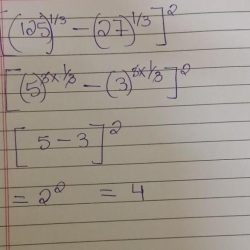 (125)^1/3 − (27)^1/3]^2
[(5)^3×1/3 − (3)^3×1/3]^2
[5 − 3]^2
= 2^2 = 4